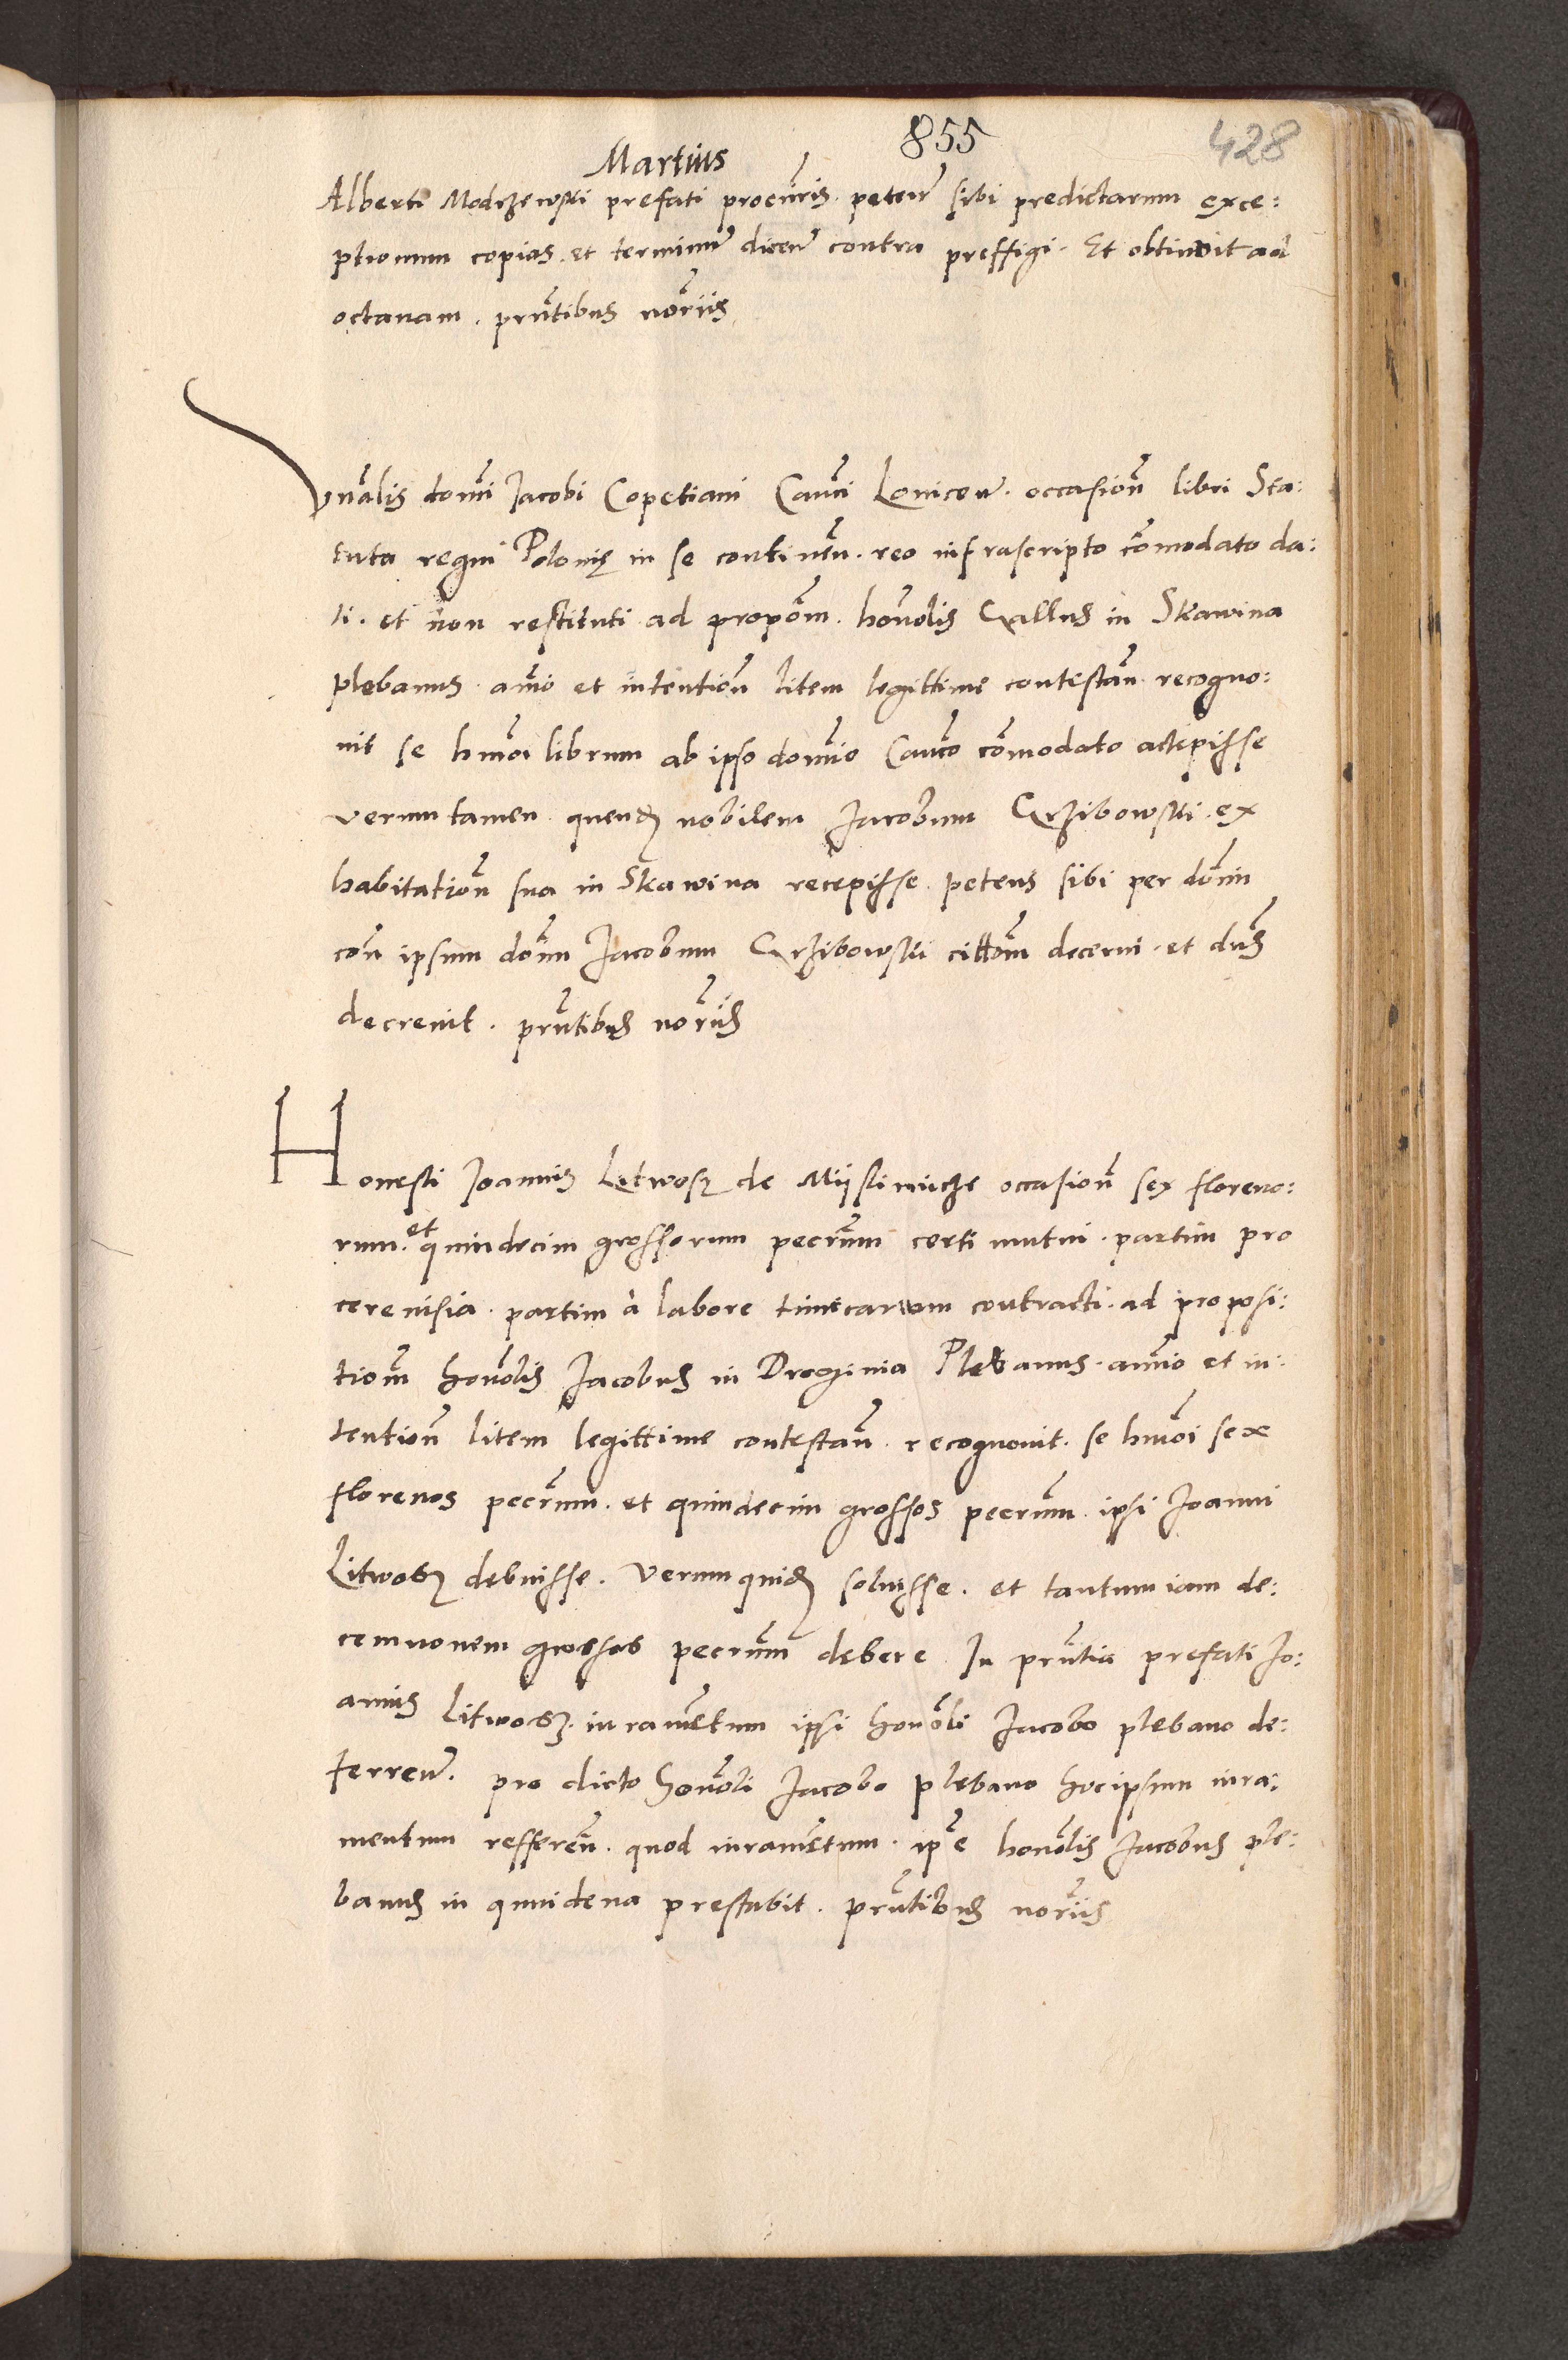 855
428
Martius
Alberti Modrzewski prefati procuris. peten̄ sibi predictarum exce:
ptionum copias. et terminū dicen̄ contra preffigi. Et obtinuit ad
octavam. prn̄tibus norīis
Vn̄alis domī Jacobi Copetiani Canci Lonicen̄. occasion̄ libri Sta:
tuta regni Polonię in se continēn. reo infrascripto cōmodato da:
ti. et non restituti ad propōm. honōlis Gallus in Skawina
plebanus. amīo et intention̄ litem legittime contestan̄ recogno:
uit se hm̄oi librum ab ipso domīo Canco cōmodato accepisse
verum tamen quendꝫ nobilem Jacobum Grzibowski. ex
habitation̄ sua in Skawina recepisse. petens sibi per domīn
con̄ ipsum dom̄ Jacobum Grzibowskii cittōm decerni. et dn̄s
decreuit. prn̄tibus norīis
Honesti Joannis Litwosz de Miisliniicze occasion̄ sex floreno:
rum. et quindecim grossorum pecrūm certi mutui. partim pro
cereuisia. partim à labore tunicarum contracti. ad proposi:
tiōm honōlis Jacobus in Droginia Plebanus. amīo et in:
tention̄ litem legittime contestan̄. recognouit. se hm̄oi sex
florenos pecrūm. et quindecim grossos pecrūm. ipsi Joanni
Litwosz debuisse. verum quidꝫ soluisse. et tantum iam de:
cemnouem grossos pecrūm debere. In prn̄tia prefati Jo:
annis Litwosz. iuramētum ipsi honōli Jacobo plebano de:
ferren̄. pro dicto honōli Jacobo plebano hoc ipsum iura:
mentum refferen̄. quod iuramētum. ip̄e honōlis Jacobus ple:
banus in quindena prestabit. prn̄tibus norīis